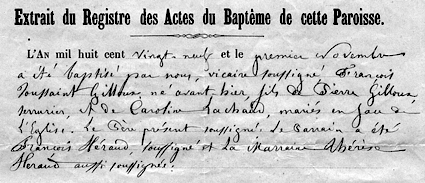 Extrait du Registre des Actes du Baptême de cette Paroisse.
L'AN mil huit cent vingt-neuf et le premier Novembre
a été baptisé par nous, vicaire soussigné François
Toussaint Gilloux né avant hier fils de Pierre Gilloux
serrurier, & de Caroline Lachaud, mariés en face de
l'Eglise. Le Père présent soussigné. Le Parrain a été
François Héraud, soussigné et La Marraine Thérèse
Héraud aussi soussignée.